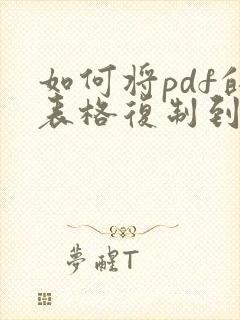 如何将pdf的
表格復制到
夢醒T